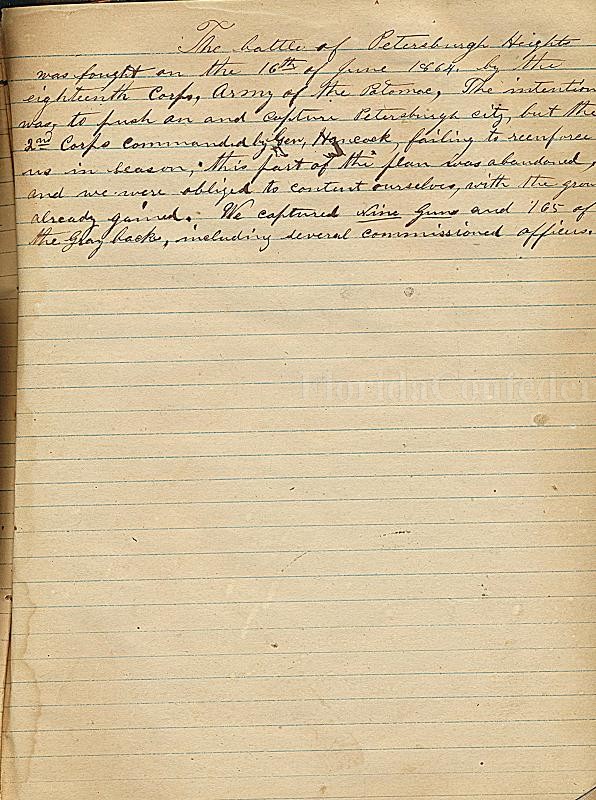 The battle of Petersburgh Heights
was fought on the 16th of June 1864. by the
eighteenth Corps, Army of the Potomac, The intention
was, to push on and capture Petersburgh city, but the
2nd Corps commanded by Gen, Hancock, failing to reenforce
us in season, this part of the plan was abandoned,
and we were obliged to content ourselves, with the groun
already gained. We captured Nine Guns and 165 of
the Gray back, including several commissioned officers.
FloridaConfeder